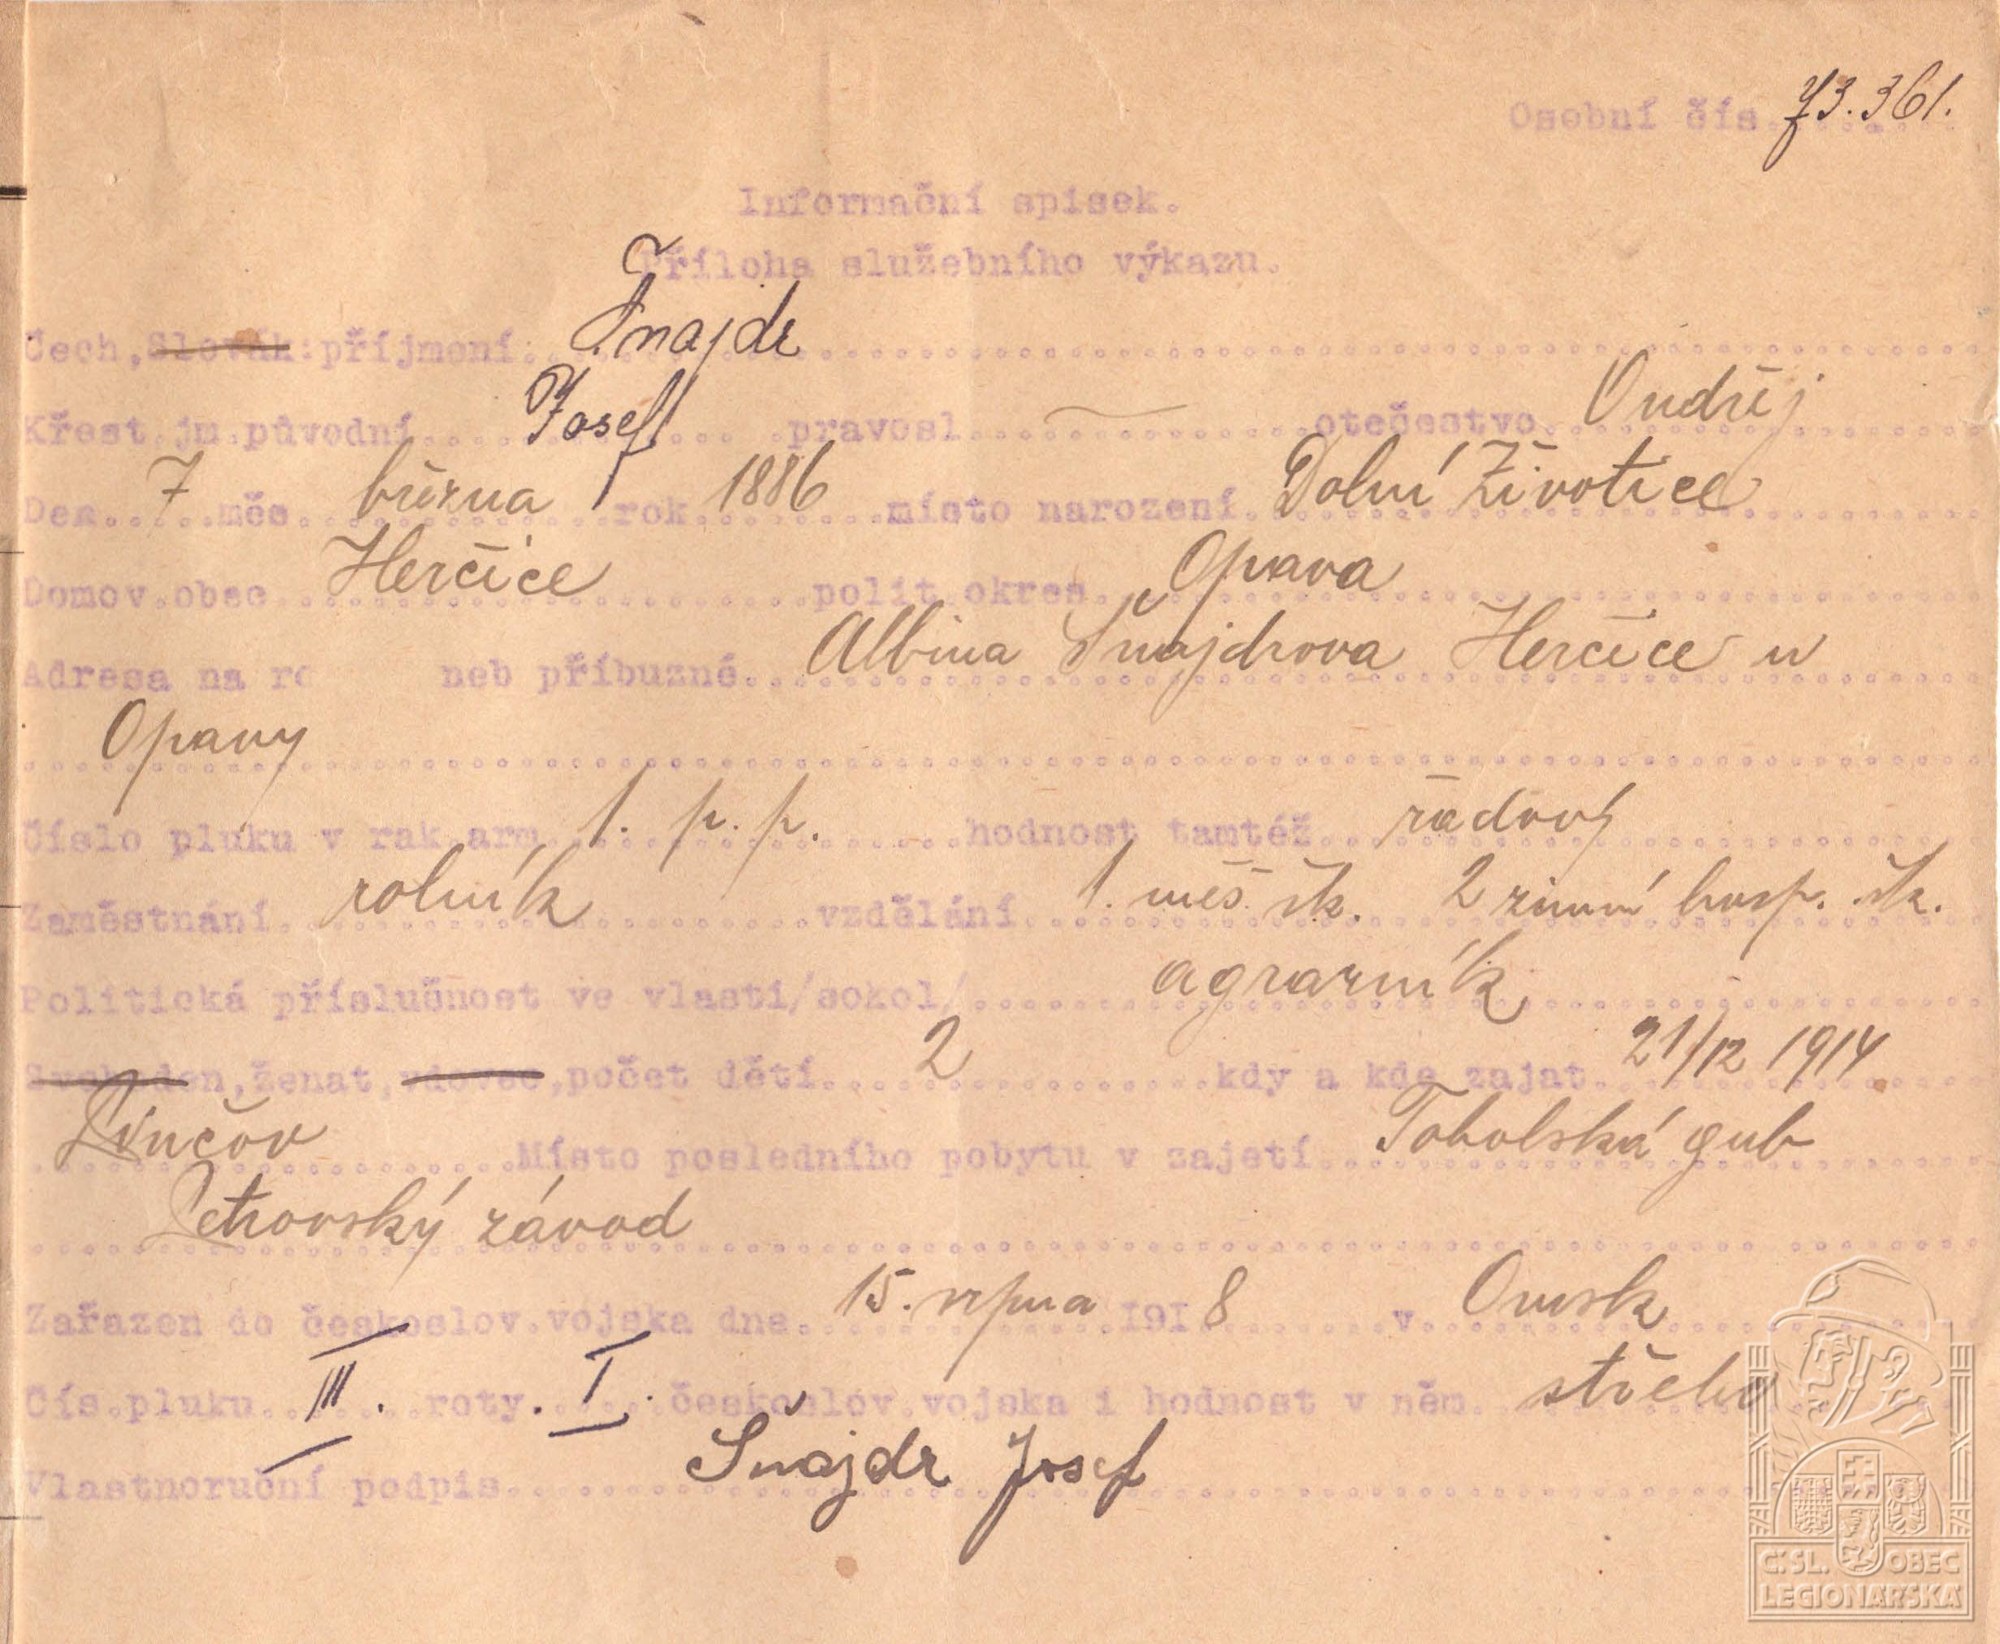 Osobní čís. 73.361.
Informační spisek.
Příloha služebního výkazu.
Čech, Slovák: příjmení: Šnajdr
Křest. jm. původní Josef pravosl. — otečestvo Ondřej
Den 7 měs. března rok 1886 místo narození Dolní Životice
Domov. obec Herčice polit. okres Opava
Adresa na ro neb příbuzné Albina Šnajdrova Herčice u
Opavy
Číslo pluku v rak. arm. 1. p. p. hodnost tamtéž řadový
Zaměstnání rolník vzdělání 1. měš. šk. 2 zimní hosp. šk.
Politická příslušnost ve vlasti/sokol/ agrarník
Svoboden, ženat, vdovec, počet dětí 2 kdy a kde zajat 21/12 1914
Pinčov Místo posledního pobytu v zajetí Tobolská gub
Petrovský závod
Zařazen do českoslov. vojska dne 15. srpna 1918 v Omsk
Čís. pluku III. roty. I. českoslov. vojska i hodnost v něm. střelec
Vlastnoruční podpis Šnajdr Josef
Č.SL. OBEC
LEGIONÁŘSKÁ